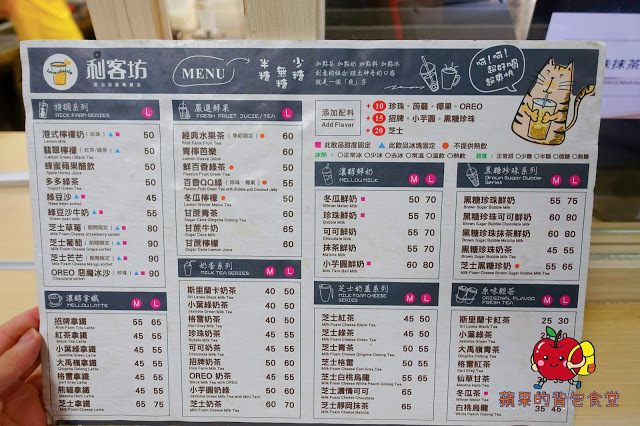 利客坊
MENU
半糖 無糖 少糖
加點茶 加點奶 加點料 加點冰
就是一個「爽」字
呵!呵!
超好喝
超爽快
添加配料
Add Flavor
+10 珍珠、蒟蒻、椰果、OREO
+15 招牌、小芋圓、黑糖珍珠
+20 芝士
此飲品甜度固定 此飲品冰塊固定 不提供熱飲
正常冰 少冰 去冰 常溫 溫飲 熱飲
特調系列
RICK FARM SERIES L
港式檸檬奶(珍珠) 50
Lemon Milk
翡翠檸檬(紅茶/綠茶) 50
Lemon Green / Black Tea
蜂蜜蘋果醋飲 50
Apple Honey Juice
多多綠茶 50
Yogurt Green Tea
綠豆沙 45
綠豆沙牛奶 55
芝士草莓(期間限定) 90
Milk Foam Cheese Strawberry sorbet
芝士葡萄(期間限定) 90
Milk Foam Cheese Grape sorbet
芝士芒芒(期間限定) 90
Milk Foam Cheese Mango sorbet
OREO 惡魔冰沙(珍珠) 90
濃醇拿鐵
MELLOW LATTE M L
招牌拿鐵 55 65
Rick Farm Trio Latte
紅茶拿鐵 45 55
Black Tea Latte
小葉綠拿鐵 45 55
Jasmine Green Latte
大禹嶺拿鐵 45 55
Qingxing Oolong Latte
格雷拿鐵 45 55
Earl Grey Latte
熊貓拿鐵 55 65
芝士拿鐵 65 75
Milk Foam Cheese Latte
嚴選鮮果
FRESH FRUIT JUCIE/TEA L
經典水果茶(季節限定) 60
Rick Farm Fruit Tea
青檸芭樂 60
Lemon Guava Juice
鮮百香綠茶 60
Passion Fruit Green Tea
百香QQ綠(珍珠、椰果) 60
Passion Fruit Green Tea with Bubble and Coconut Jelly
冬瓜檸檬 50
Lemon Winter Melon Tea
甘蔗青茶 60
Sugar Cane Qingxing Oolong Tea
甘蔗牛奶 60
Sugar Cane Milk
甘蔗檸檬 60
Sugar Cane Lemon Juice
奶香系列
MILK TEA SERIES M L
斯里蘭卡奶茶 40 50
Sri Lanka Black Milk Tea
小葉綠奶茶 40 50
Jasmine Milk Tea
格雷奶茶 40 50
Earl Grey Milk Tea
珍珠奶茶 40 50
Bubble Milk Tea
可可奶茶 45 55
Chocolate Milk Tea
招牌奶茶 50 60
Rick Farm Milk Tea
OREO 奶茶 50 60
Black Milk Tea with Mini OREO
小芋圓奶茶 50 60
芝士奶茶 60 70
Milk Foam Cheese Milk Tea
濃醇鮮奶
MELLOW MILK M L
冬瓜鮮奶 50 70
Winter Melon Milk
珍珠鮮奶 50 70
Bubble Milk
可可鮮奶 50 70
Chocolate Milk
抹茶鮮奶 50 70
Matcha Milk
小芋圓鮮奶 60 80
Mini Taro Ball Milk
芝士奶蓋系列
MILK FOAM CHEESE SERIES M L
芝士紅茶 45 50
Milk Foam Cheese Black Tea
芝士綠茶 45 50
芝士青茶 50 60
Milk Foam Cheese Qingxing Oolong Tea
芝士格雷 50 60
Milk Foam Cheese Earl Grey Tea
芝士白桃烏龍 55 65
Milk Foam Cheese White Peach Oolong Tea
芝士濃情可可 65 75
Milk Foam Cheese Chocolate
芝士靜岡抹茶 65 75
Milk Foam Cheese Matcha
黑糖珍珠系列
Brown Sugar Bubble Series M L
黑糖珍珠鮮奶 55 75
Brown Sugar Bubble Milk
黑糖珍珠可可鮮奶 60 80
Brown Sugar Bubble Chocolate Milk
黑糖珍珠抹茶鮮奶 60 80
Brown Sugar Bubble Matcha Milk
黑糖珍珠奶茶 45 55
Brown Sugar Bubble Milk Tea
芝士黑糖珍奶 55 65
原味輕茶
ORIGINAL FLAVOR FRESH TEA M L
斯里蘭卡紅茶 25 30
Sri Lanka Black Tea
小葉綠茶
大禹嶺青茶
格雷紅茶
仙草甘茶
冬瓜茶
白桃烏龍 35 45
抹茶
蘋果的背包食堂